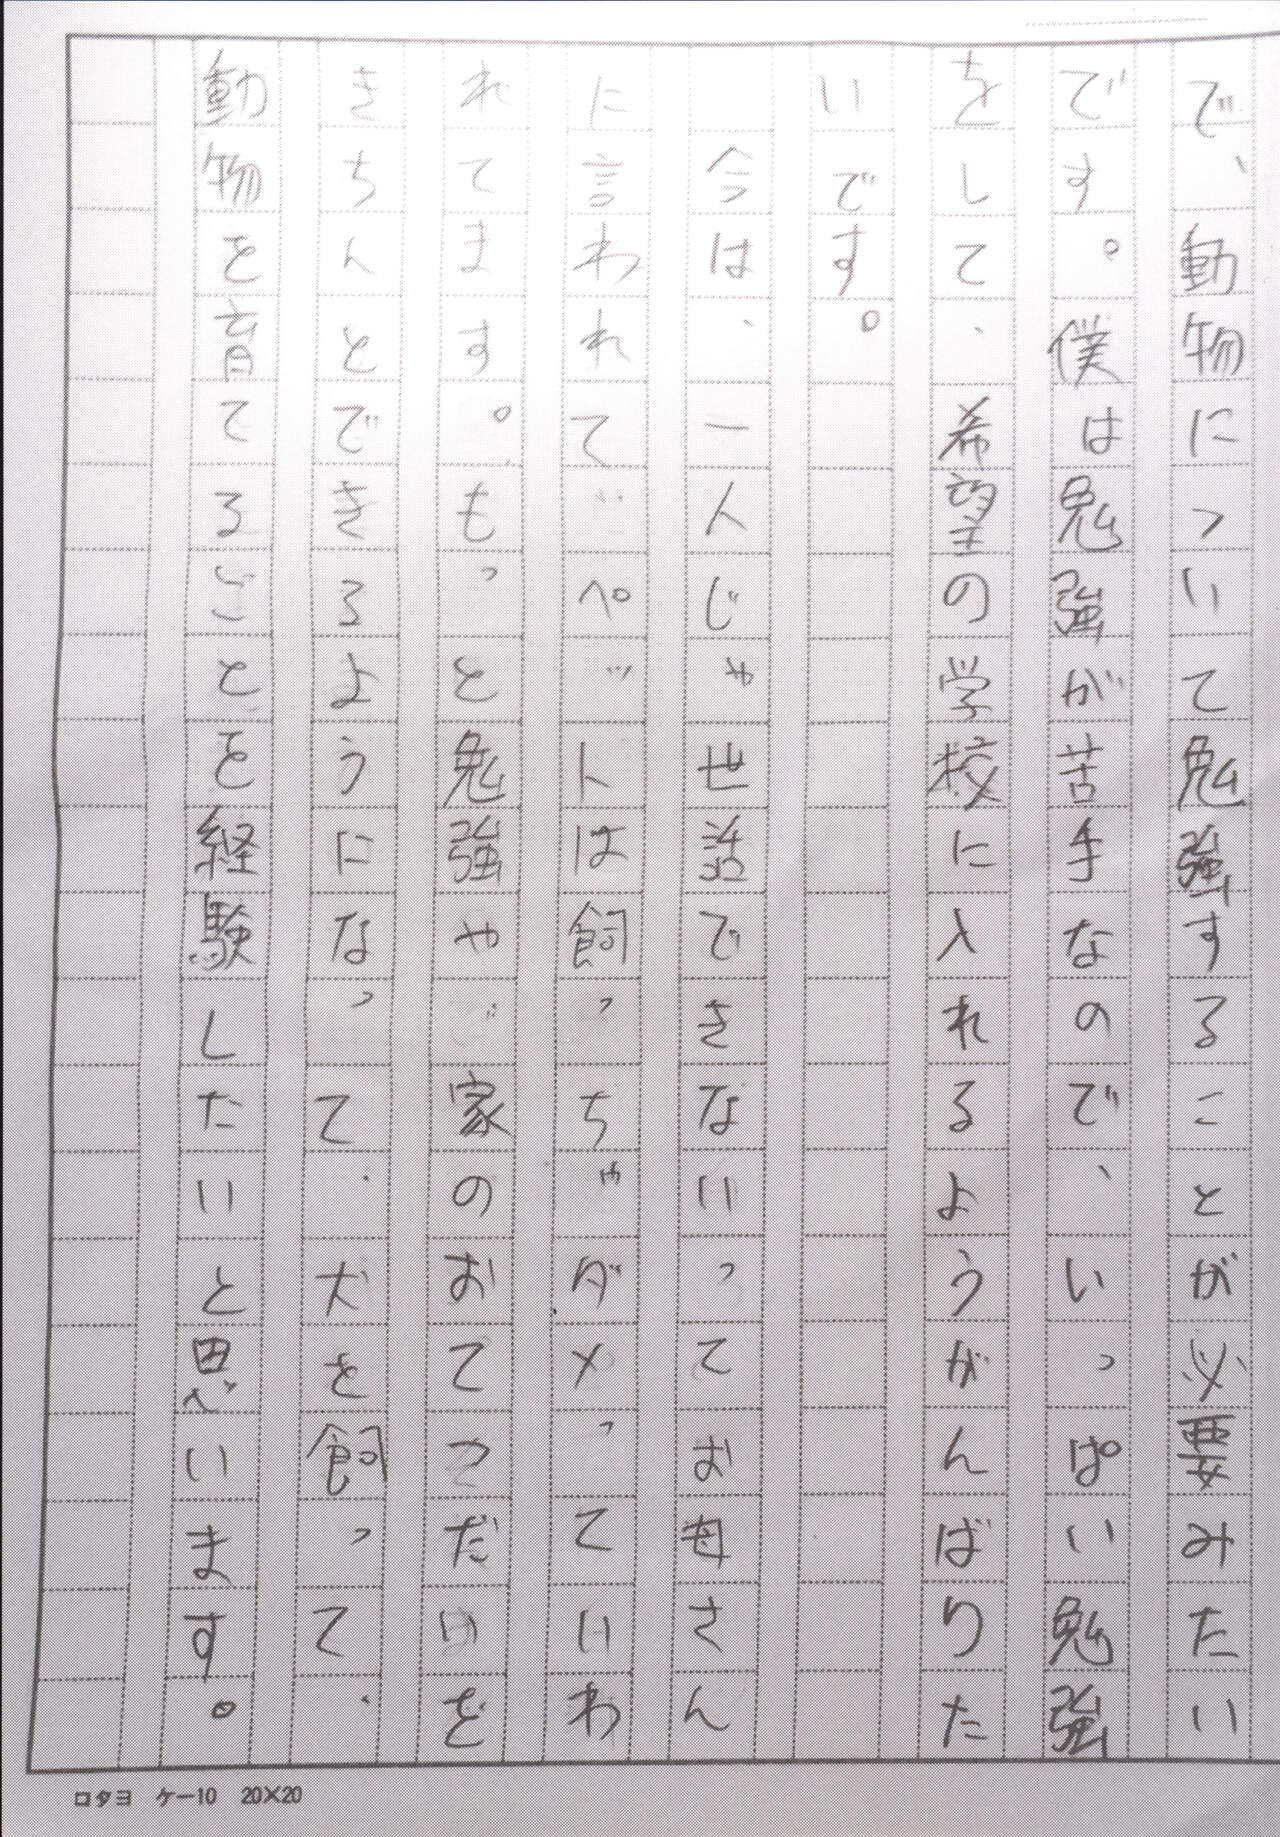 で、動物について勉強することが必要みたい
です。僕は勉強が苦手なので、いっぱい勉強
をして、希望の学校に入れるようがんばりた
いです。
今は、一人じゃ世話できないってお母さん
に言われてペットは飼っちゃダメっていわ
れてます。もっと勉強や家のおてつだいを
きちんとできるようになって、犬を飼って、
動物を育てることを経験したいと思います。
ロタヨ ケー10 20×20